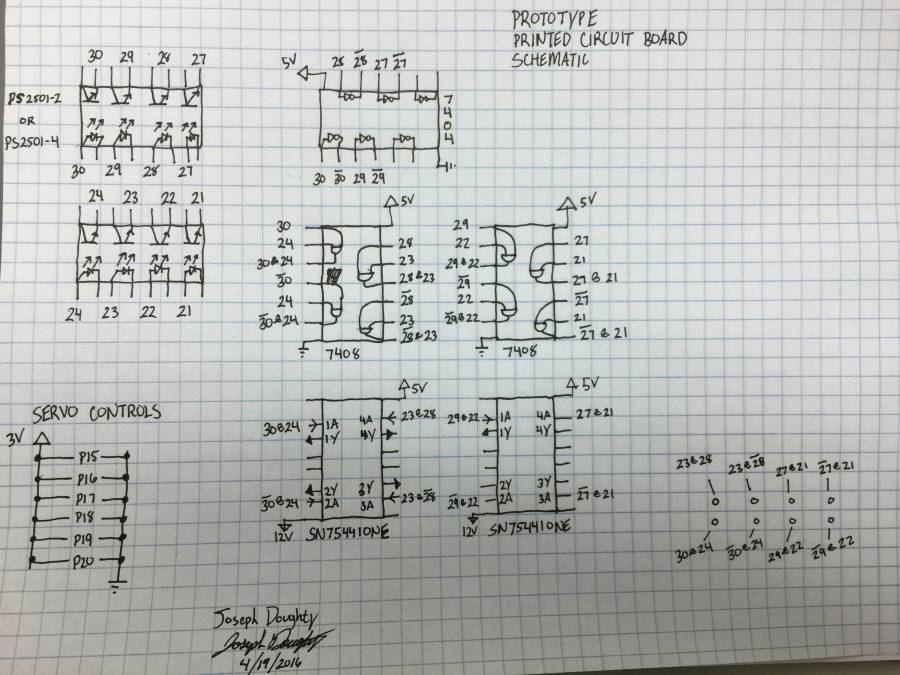 PROTOTYPE
PRINTED CIRCUIT BOARD
SCHEMATIC
30 29 28 27
PS2501-2
OR
PS2501-4
30 29 28 27
24 23 22 21
24 23 22 21
5V 28 2̅8̅ 27 2̅7̅
7404
30 3̅0̅ 29 2̅9̅
5V
30
24
30&24
3̅0̅
24
3̅0̅&24
28
23
28&23
2̅8̅
23
2̅8̅&23
7408
5V
29
22
29&22
2̅9̅
22
2̅9̅&22
27
21
27&21
2̅7̅
21
2̅7̅&21
7408
SERVO CONTROLS
3V
P15
P16
P17
P18
P19
P20
5V
30&24 1A 4A 23&28
1Y 4Y
2Y 3Y
3̅0̅&24 2A 3A 23&2̅8̅
12V SN754410NE
5V
29&22 1A 4A 27&21
1Y 4Y
2Y 3Y
2̅9̅&22 2A 3A 2̅7̅&21
12V SN754410NE
23&28 23&2̅8̅ 27&21 2̅7̅&21
30&24 3̅0̅&24 29&22 2̅9̅&22
Joseph Doughty
Joseph Doughty
4/19/2016